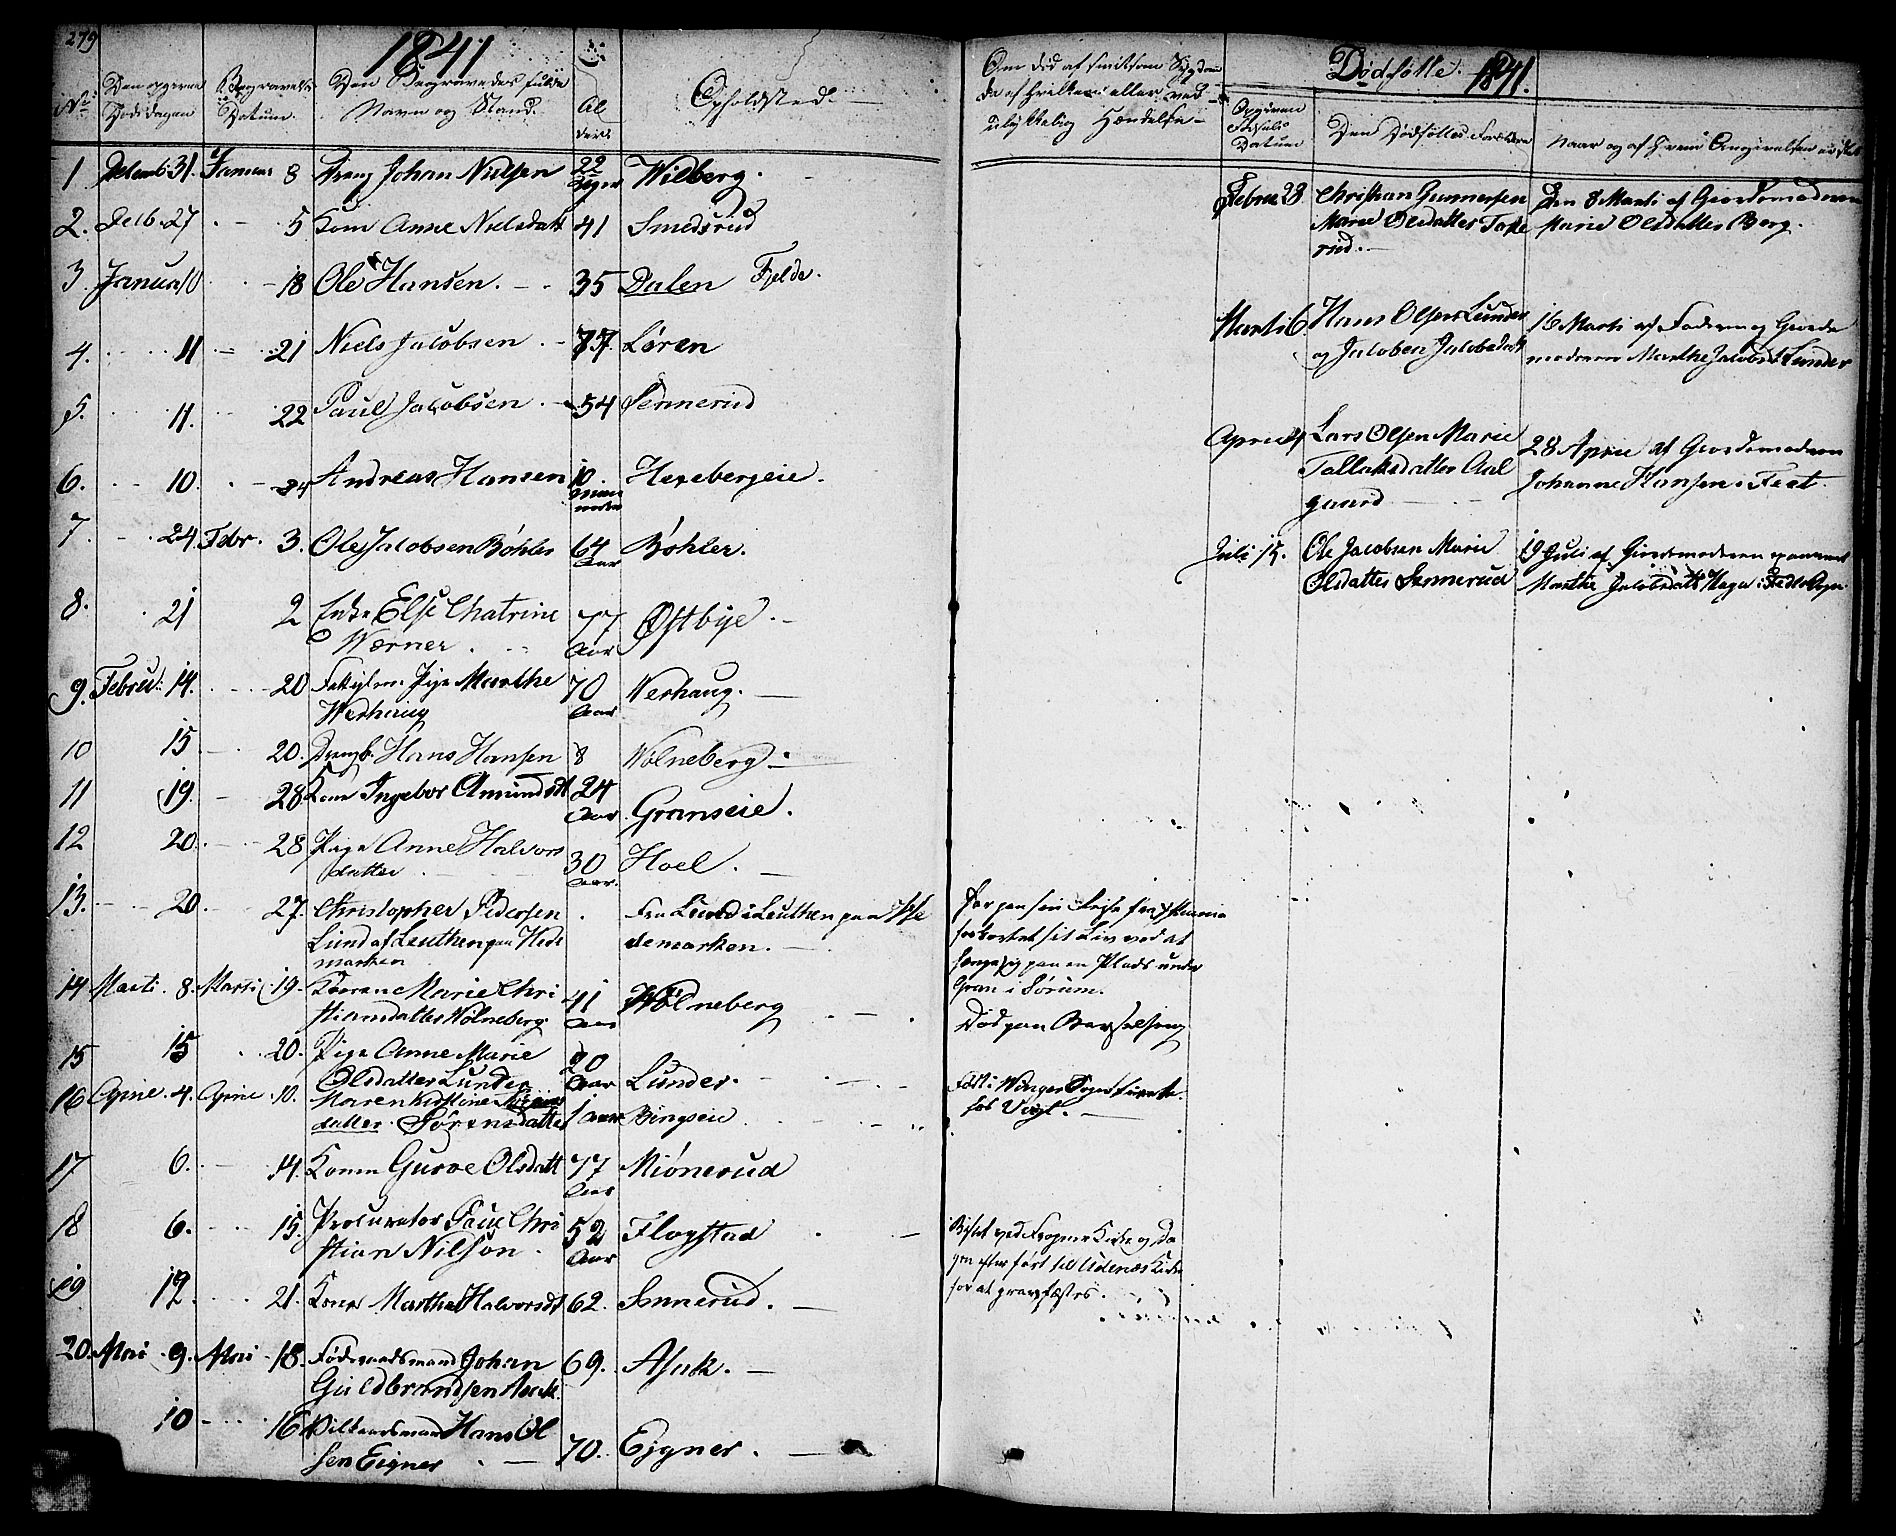 279
1841
No
Den opgivne
Dødsdagen
Begravelses
Datum.
Den Begravedes fulde
Navn og Stand.
Al
ders
Opholdsted.
1. Decemb 31. Januar 8 Dreng Johan Nielsen 22 Dage Wilberg.
2. Decb. 27 5. Kone Anne Nielsdatt 41 Smedsrud
3. Janua 10 18 Ole Hansen. 35 Dalen Fjelde.
4. 11 21 Niels Jacobsen 77. Løren
5. 11. 22 Paul Jacobsen 54 Sennerud
6. 10. 24 Andreas Hansen 10. Maaneder Hexebergeie.
7. 24. Febr. 3. Ole Jacobsen Bøhler 64 Aar Bøhler.
8. 21 2 Enke Else Chatrine
Wærner 77 Aar Østbye.
9. Februa: 14. 20 Pige Marthe
Werhaug 70 Aar Werhaug.
10 15 20. Drengb. Hans Hansen 8 Wølneberg
11 19. 28 Kone Ingebor Amundsdt 24 Aar Granseie.
12 20. 28 Pige Anne Halvors
datter 30 Aar. Hoel.
13. 20 27. Christopher Pedersen
Lund af Leuthen paa Hede
marken Fra Lund i Leuthen paa He
demarken.
14 Marti 8. Marti 19. Konen Marie Chri
stiansdatter Wølneberg 41 Aar Wølneberg
15 15 20. Pige Anne Marie
Olsdatter Lunder 20 Aar Lunder.
16 April 4. April 10. Maren Kirstine
datter Sørensdatter 1 Aar Bingseie
17 6. 14. Konen Gurve Olsdatt 77 Aar Miønerud
18 6. 15. Procurator Paul Chri
stian Nilson 52 Aar Flogstad
19 12. 21. Kone Marthe Halvorsdt 62. Sennerud.
20. Mai 9. Mai 18. Føderaadsmand Johan
Guldbrandsen Asak 69. Asak.
10 16 Hans Ol
sen Eigner 70. Ejgner.
Om død af smitsom Sygdom
da af hvilken eller ved
ulykkelig Hændelse
Har paa sin Reise fra
forkortet sit Liv ved at
hænge sig paa en Plads under
Gran i Sørum.
Død paa Barselseng
Født i Winger
Bisat ved Frogner Kirke og Da
gen efter ført til Udenæs Kirke
for at gravfæstes.
Dødfødte. 1841.
Opgiven
Fødsels
Datum
Den Dødfødtes Forældre
Naar og af hvem Angivelsen er skeet
Februa 28. Christian Gunnersen
Marie Olsdatter Take
rud. Den 8 Marti af Gjordemoderen
Marie Olsdatter Berg.
Marti 6. Hans Olsen Lunder
og Jacoben Jacobsdatt 16 Marti af Faderen og Gjorde
moderen Marthe Jacobsd. Lunder
April 21 Lars Olsen Marie
Tollaksdatter Aal
gaard 28 April af Gjordemoderen
Johanne Hansen i Feet
Juli 15. Ole Jacobsen Marie
Olsdatter Sennerud 19 Juli af Gjordemoderen
Marthe Jacobsdatt Haga i